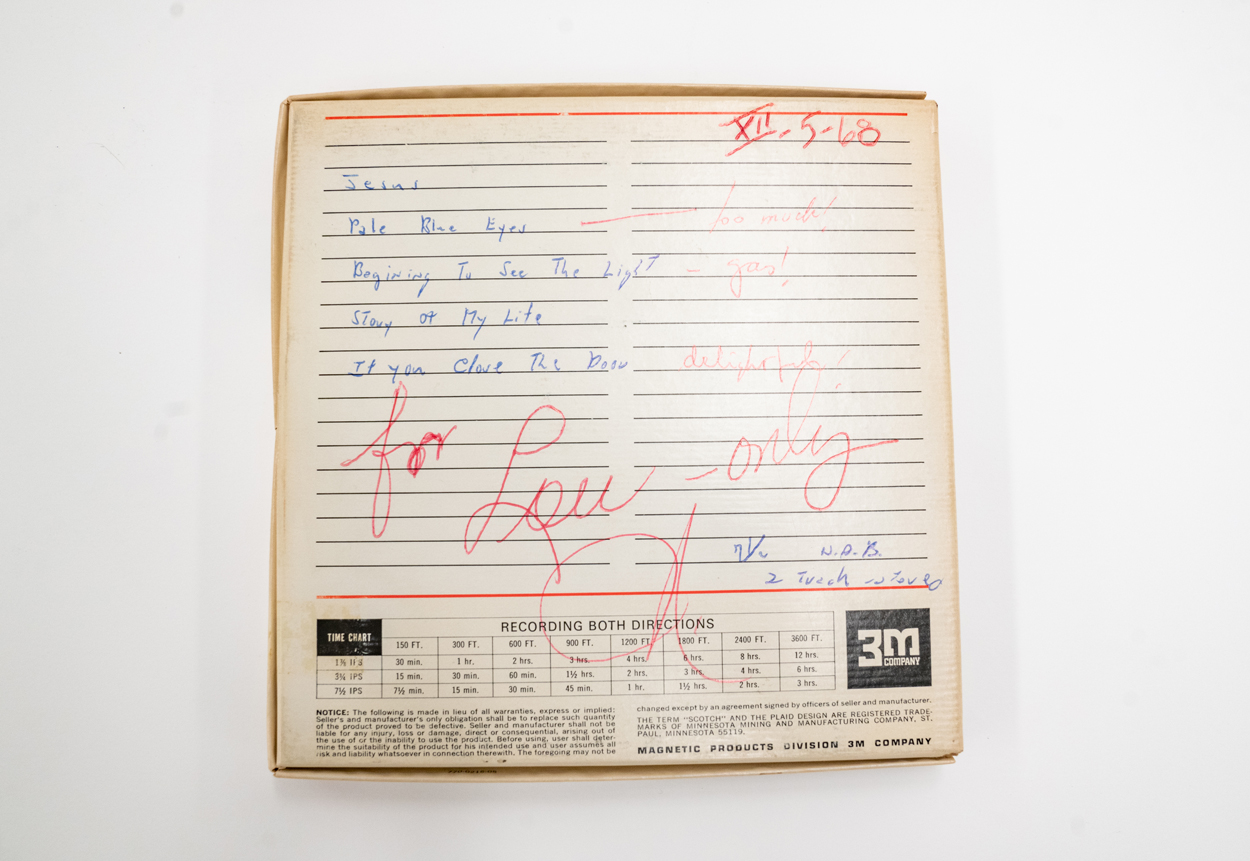 XII-5-68
Jesus
Pale Blue Eyes — too much!
Begining To See The Light — gas!
Story of My Life
If you Close The Door delightful!
for Lou - only
7 1/2 N.A.B.
2 Track stereo
RECORDING BOTH DIRECTIONS
TIME CHART 150 FT. 300 FT. 600 FT. 900 FT. 1200 FT. 1800 FT. 2400 FT. 3600 FT.
1⅞ IPS 30 min. 1 hr. 2 hrs. 3 hrs. 4 hrs. 6 hrs. 8 hrs. 12 hrs.
3¾ IPS 15 min. 30 min. 60 min. 1½ hrs. 2 hrs. 3 hrs. 4 hrs. 6 hrs.
7½ IPS 7½ min. 15 min. 30 min. 45 min. 1 hr. 1½ hrs. 2 hrs. 3 hrs.
3M
COMPANY
NOTICE: The following is made in lieu of all warranties, express or implied:
Seller's and manufacturer's only obligation shall be to replace such quantity
of the product proved to be defective. Seller and manufacturer shall not be
liable for any injury, loss or damage, direct or consequential, arising out of
the use of or the inability to use the product. Before using, user shall deter-
mine the suitability of the product for his intended use and user assumes all
risk and liability whatsoever in connection therewith. The foregoing may not be
changed except by an agreement signed by officers of seller and manufacturer.
THE TERM "SCOTCH" AND THE PLAID DESIGN ARE REGISTERED TRADE-
MARKS OF MINNESOTA MINING AND MANUFACTURING COMPANY, ST.
PAUL, MINNESOTA 55119.
MAGNETIC PRODUCTS DIVISION 3M COMPANY